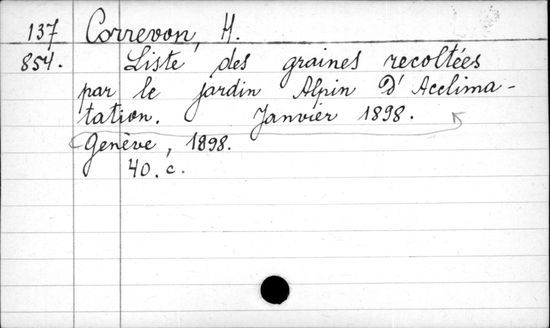 137 Correvon, H.
854. Liste des graines recoltées
par le jardin Alpin D'Acclima-
tation. Janvier 1898.
Genève, 1898.
40. c.